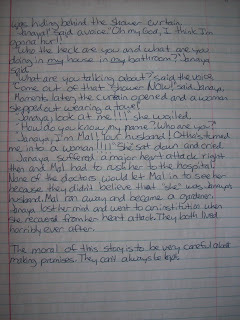 was hiding behind the shower curtain.
"Janaya!" said a voice. "Oh my God, I think I'm
going nur!!"
"Who the heck are you and what are you
doing in my house in my bathroom?" Janaya
said.
"What are you talking about?" said the voice.
"Come out of that shower NOW!" said Janaya.
Moments later, the curtain opened and a woman
stepped out wearing a towel.
"Janaya, look at me!!!" she wailed.
"How do you know my name? Who are you?"
"Janaya, I'm Mal! Your husband! Others turned
me into a woman!!!!" She sat down and cried.
Janaya suffered a major heart attack right
then and Mal had to rush her to the hospital.
None of the doctors would let Mal in to see her
because they didn't believe that "she" was Janaya's
husband. Mal ran away and became a gardener.
Janaya lost her mind and went to an institution when
she recovered from her heart attack. They both lived
horribly ever after.
The moral of this story is to be very careful about
making promises. They can't always be kept.